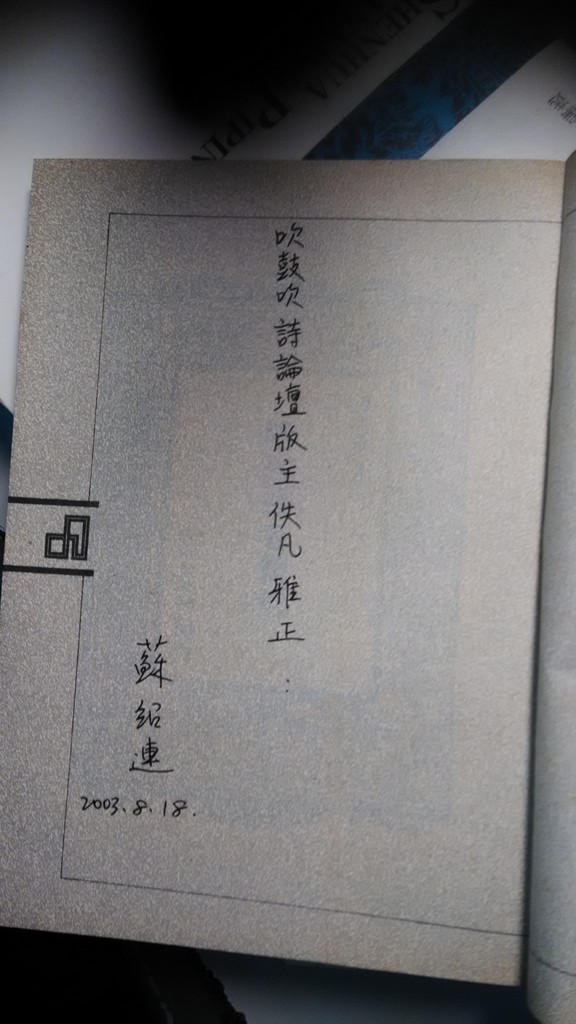 吹鼓吹詩論壇版主佚凡雅正：
蘇紹連
2003.8.18.
SHENHUA
PIPIN